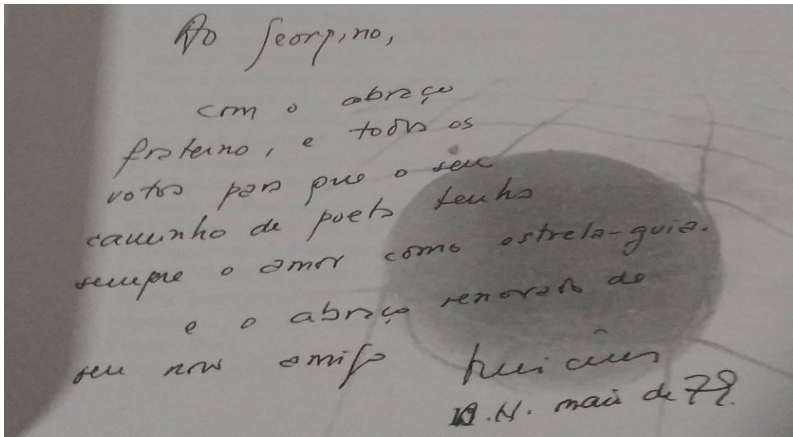 Ao Georgino,
com o abraço
fraterno, e todos os
votos para que o seu
caminho de poeta tenha
sempre o amor como estrela-guia.
e o abraço renovado do
seu novo amigo
B.H. maio de 79.